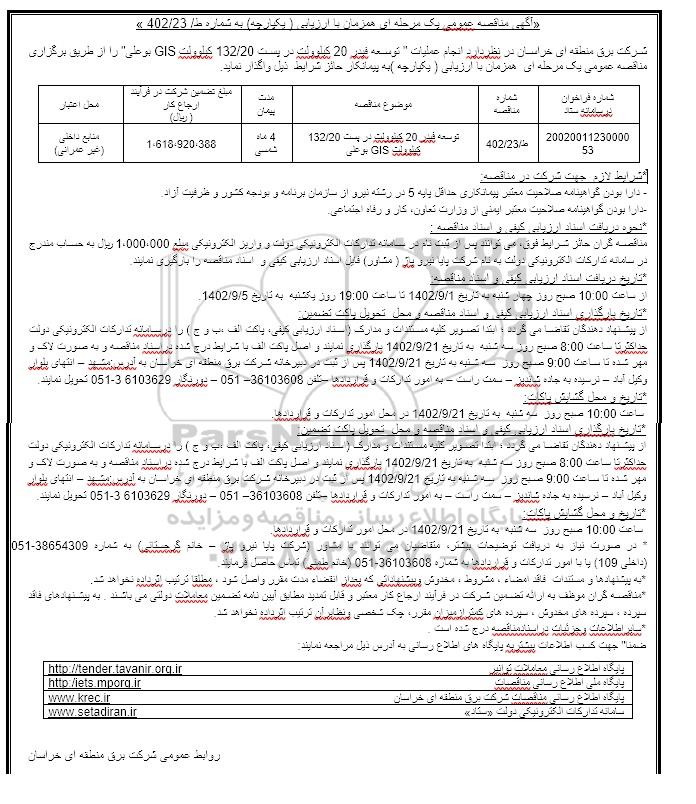 «آگهي مناقصه عمومي يک مرحله اي همزمان با ارزيابي ( يکپارچه) به شماره ط/ 402/23 »
شرکت برق منطقه اي خراسان در نظردارد انجام عمليات " توسعه فيدر 20 کيلوولت در پست 132/20 کيلوولت GIS بوعلي" را از طريق برگزاري
مناقصه عمومي يک مرحله اي همزمان با ارزيابي ( يکپارچه )به پيمانکار حائز شرايط ذيل واگذار نمايد.
شماره فراخوان درسامانه ستاد
شماره مناقصه
موضوع مناقصه
مدت پيمان
مبلغ تضمين شرکت در فرآيند ارجاع کار ( ريال)
محل اعتبار
2002001123000053
ط/402/23
توسعه فيدر 20 کيلوولت در پست 132/20 کيلوولت GIS بوعلي
4 ماه شمسي
1،618،920،388
منابع داخلي (غير عمراني)
*شرايط لازم جهت شرکت در مناقصه:
- دارا بودن گواهينامه صلاحيت معتبر پيمانکاري حداقل پايه 5 در رشته نيرو از سازمان برنامه و بودجه کشور و ظرفيت آزاد.
-دارا بودن گواهينامه صلاحيت معتبر ايمني از وزارت تعاون، کار و رفاه اجتماعي.
*نحوه دريافت اسناد ارزيابي کيفي و اسناد مناقصه :
مناقصه گران حائز شرايط فوق، مي توانند پس از ثبت نام در سامانه تدارکات الکترونيکي دولت و واريز الکترونيکي مبلغ 1،000،000 ريال به حساب مندرج
در سامانه تدارکات الکترونيکي دولت به نام شرکت پايا نيرو پاژ ( مشاور) فايل اسناد ارزيابي کيفي و اسناد مناقصه را بارگيري نمايند.
*تاريخ دريافت اسناد ارزيابي کيفي و اسناد مناقصه:
از ساعت 10:00 صبح روز چهار شنبه به تاريخ 1402/9/1 تا ساعت 19:00 روز يکشنبه به تاريخ 1402/9/5.
*تاريخ بارگذاري اسناد ارزيابي کيفي و اسناد مناقصه و محل تحويل پاکت تضمين:
از پيشنهاد دهندگان تقاضا مي گردد ؛ ابتدا تصوير کليه مستندات و مدارک ( اسناد ارزيابي کيفي، پاکت الف ،ب و ج ) را درسامانه تدارکات الکترونيکي دولت
حداکثرتا ساعت 8:00 صبح روز سه شنبه به تاريخ 1402/9/21 بارگذاري نمايند و اصل پاکت الف با شرايط درج شده دراسناد مناقصه و به صورت لاک و
مهر شده تا ساعت 9:00 صبح روز سه شنبه به تاريخ 1402/9/21 پس از ثبت در دبيرخانه شرکت برق منطقه اي خراسان به آدرس:مشهد – انتهاي بلوار
وکيل آباد – نرسيده به جاده شانديز – سمت راست – به امور تدارکات و قراردادها –تلفن 36103608– 051 – دورنگار 6103629 3-051 تحويل نمايند.
*تاريخ و محل گشايش پاکات:
ساعت 10:00 صبح روز سه شنبه به تاريخ 1402/9/21 در محل امور تدارکات و قراردادها.
*تاريخ بارگذاري اسناد ارزيابي کيفي و اسناد مناقصه و محل تحويل پاکت تضمين:
از پيشنهاد دهندگان تقاضا مي گردد ؛ ابتدا تصوير کليه مستندات و مدارک ( اسناد ارزيابي کيفي، پاکت الف ،ب و ج ) را درسامانه تدارکات الکترونيکي دولت
حداکثرتا ساعت 8:00 صبح روز سه شنبه به تاريخ 1402/9/21 بارگذاري نمايند و اصل پاکت الف با شرايط درج شده دراسناد مناقصه و به صورت لاک و
مهر شده تا ساعت 9:00 صبح روز سه شنبه به تاريخ 1402/9/21 پس از ثبت در دبيرخانه شرکت برق منطقه اي خراسان به آدرس:مشهد – انتهاي بلوار
وکيل آباد – نرسيده به جاده شانديز – سمت راست – به امور تدارکات و قراردادها –تلفن 36103608– 051 – دورنگار 6103629 3-051 تحويل نمايند.
*تاريخ و محل گشايش پاکات:
ساعت 10:00 صبح روز سه شنبه به تاريخ 1402/9/21 در محل امور تدارکات و قراردادها.
* در صورت نياز به دريافت توضيحات بيشتر، متقاضيان مي توانند با مشاور (شرکت پايا نيرو پاژ – خانم گرجستاني) به شماره 38654309-051
(داخلي 109) يا با امور تدارکات و قراردادها به شماره 36103608-051 (خانم طمني) تماس حاصل فرمايند.
*به پيشنهادها و مستندات فاقد امضاء ، مشروط ، مخدوش وپيشنهاداتي که بعداز انقضاء مدت مقرر واصل شود ، مطلقا ترتيب اثرداده نخواهد شد.
*مناقصه گران موظف به ارائه تضمين شرکت در فرآيند ارجاع کار معتبر و قابل تمديد مطابق آيين نامه تضمين معاملات دولتي مي باشند . به پيشنهادهاي فاقد
سپرده ، سپرده هاي مخدوش ، سپرده هاي کمترازميزان مقرر، چک شخصي ونظايرآن ترتيب اثرداده نخواهد شد.
*ساير اطلاعات وجزئيات دراسنادمناقصه درج شده است .
ضمنا" جهت کسب اطلاعات بيشتربه پايگاه هاي اطلاع رساني به آدرس ذيل مراجعه نمايند:
پايگاه اطلاع رساني معاملات توانير http://tender.tavanir.org.ir
پايگاه ملي اطلاع رساني مناقصات http:/iets.mporg.ir
پايگاه اطلاع رساني مناقصات شرکت برق منطقه اي خراسان www.krec.ir
سامانه تدارکات الکترونيکي دولت «ستاد» www.setadiran.ir
روابط عمومي شرکت برق منطقه اي خراسان